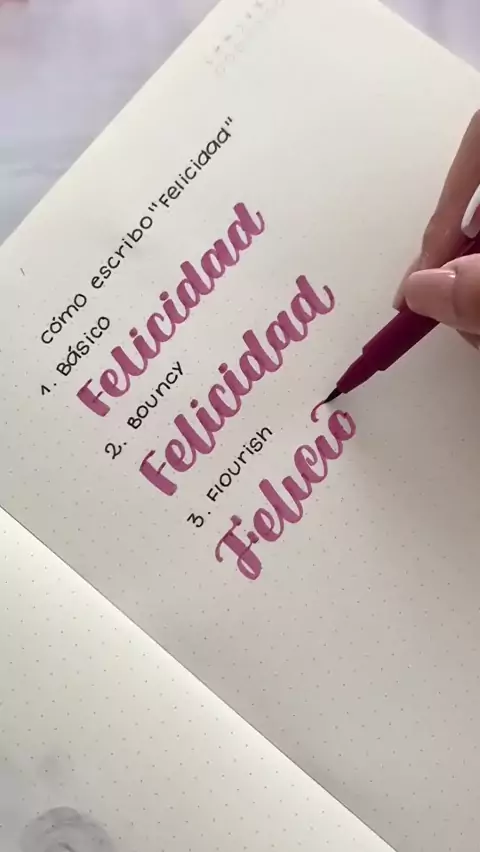 cómo escribo "Felicidad"
1. Básico
Felicidad
2. Bouncy
Felicidad
3. Flourish
Felicio